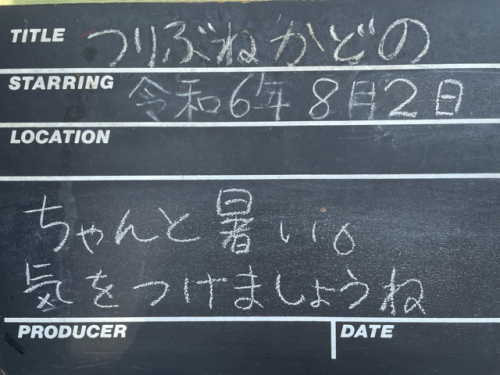 TITLE つりぶねかどの
STARRING 令和6年8月2日
LOCATION
ちゃんと暑い。
気をつけましょうね
PRODUCER DATE